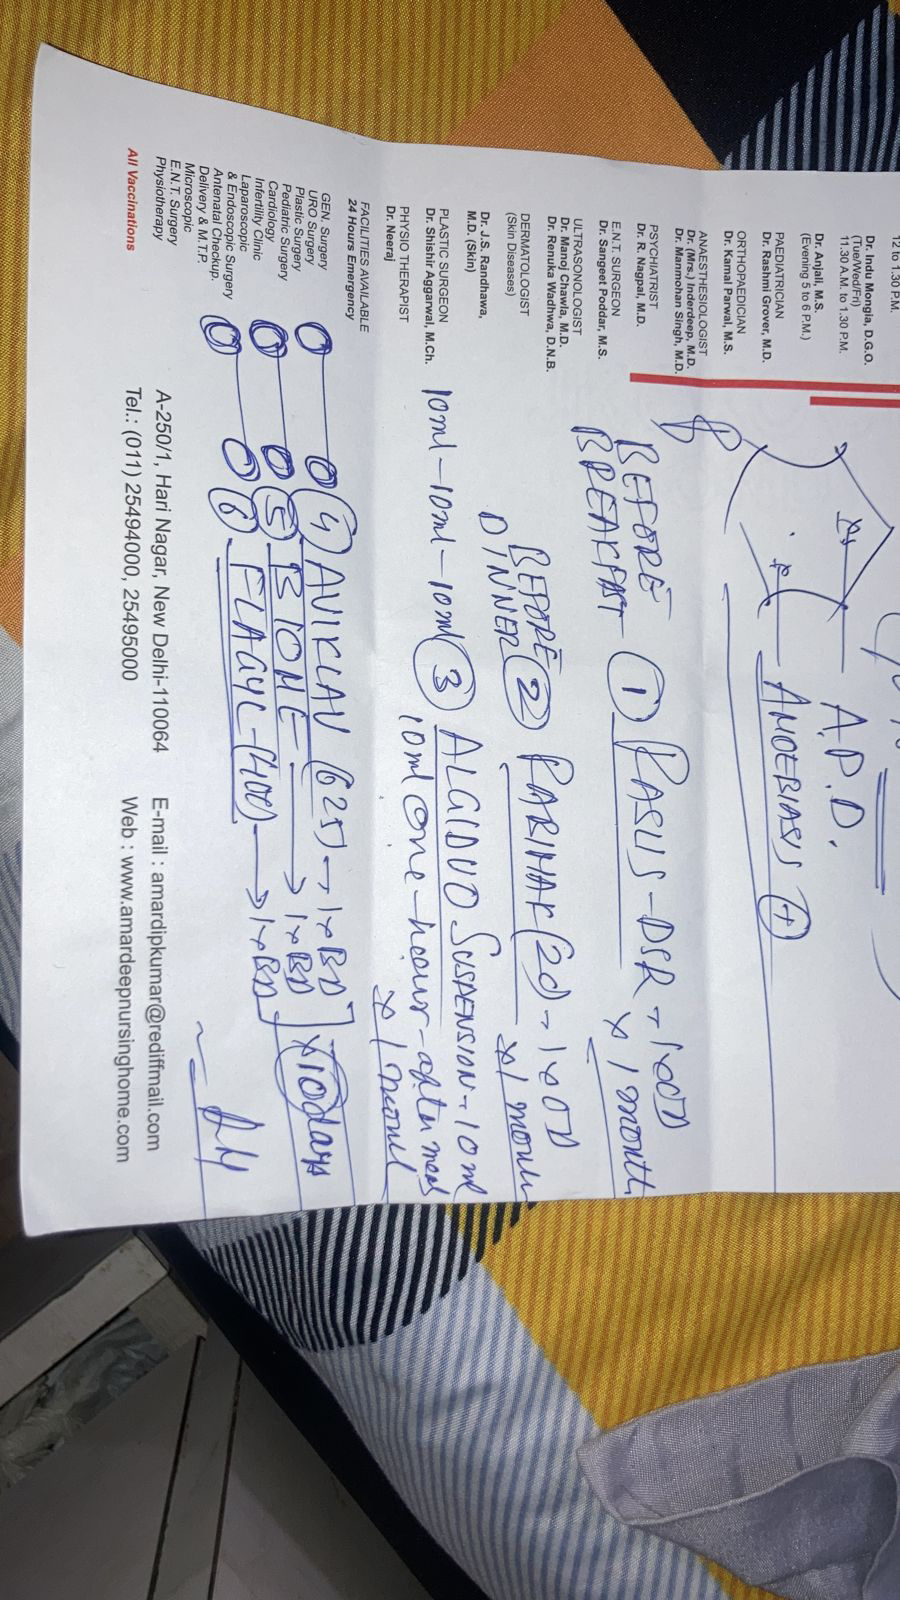 12 to 1.30 P.M.
Dr. Indu Mongia, D.G.O.
(Tue/Wed/Fri)
11.30 A.M. to 1.30 P.M.
Dr. Anjali, M.S.
(Evening 5 to 6 P.M.)
PAEDIATRICIAN
Dr. Rashmi Grover, M.D.
ORTHOPAEDICIAN
Dr. Kamal Parwal, M.S.
ANAESTHESIOLOGIST
Dr. (Mrs.) Inderdeep, M.D.
Dr. Manmohan Singh, M.D.
PSYCHIATRIST
Dr. R. Nagpal, M.D.
E.N.T. SURGEON
Dr. Sangeet Poddar, M.S.
ULTRASONOLOGIST
Dr. Manoj Chawla, M.D.
Dr. Renuka Wadhwa, D.N.B.
DERMATOLOGIST
(Skin Diseases)
Dr. J.S. Randhawa,
M.D. (Skin)
PLASTIC SURGEON
Dr. Shishir Aggarwal, M.Ch.
PHYSIO THERAPIST
Dr. Neeraj
FACILITIES AVAILABLE
24 Hours Emergency
GEN. Surgery
URO Surgery
Plastic Surgery
Pediatric Surgery
Cardiology
Infertility Clinic
Laparoscopic
& Endoscopic Surgery
Antenatal Checkup.
Delivery & M.T.P.
Microscopic
E.N.T. Surgery
Physiotherapy
All Vaccinations
A.P.D.
AMOEBIASIS (+)
BEFORE
BREAKFAST
(1) - DSR → 1xOD
x 1 month
BEFORE
DINNER
(2) → 1xOD
x 1 month
10ml-10ml-10ml (3) ALGIDUO SUSPENSION → 10ml
10ml One-hour-after meal
x 1 month
0 — 0 (4) (625) → 1xBD
0 — 0 (5) → 1xBD
0 — 0 (6) FLAGYL-(400) → 1xBD
x 10 days
A-250/1, Hari Nagar, New Delhi-110064 E-mail : amardipkumar@rediffmail.com
Tel.: (011) 25494000, 25495000 Web : www.amardeepnursinghome.com